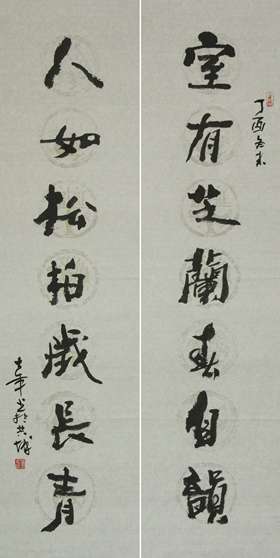 室有芝蘭春自韻
丁酉冬末
人如松柏歲長青